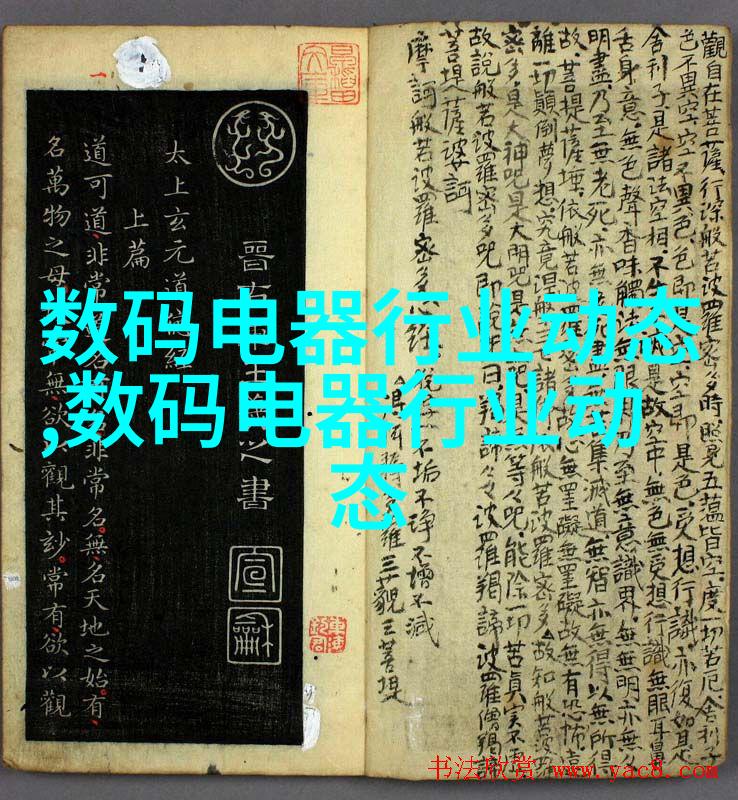 数码电器行业动态
,数码电器行业动
态
觀自在菩薩行深般若波羅蜜多時照見五蘊皆空度一切苦厄舍利子
色不異空空不異色色即是空即是色受想行識亦復如是
舍利子是諸法空相不生是故空中無色無受想行識無眼耳鼻
舌身意無色聲香味觸法無眼至無意識界無無明亦無
明盡乃至無老死亦無盡集滅道無智亦無得以無所得
故菩提薩埵依般若波羅心無罣礙無罣礙故無有恐怖遠
離一切顛倒夢想究竟涅三諸依般若波羅密多故知般若波
密多是大神咒是大明咒是等々咒能除一切苦真實不
故說般若波羅密多咒即說曰羯諦々々波羅羯諦波羅僧羯諦
菩提薩婆訶
摩訶般若波羅密多心經
不垢不諍不增不減
三藐三菩提
晉右之書
宣
龢
太上玄元道經
上篇
道可道非常名非常名無名天地之始有
名萬物之母無欲觀其妙常有欲以觀
书法欣赏 www.yac8.com